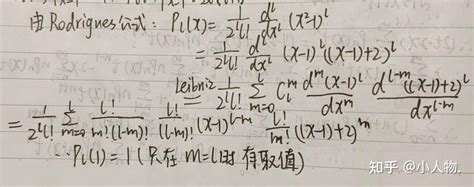 由Rodrigues公式: P_l(x) = \frac{1}{2^l l!} \frac{d^l}{dx^l} (x^2-1)^l
= \frac{1}{2^l l!} \frac{d^l}{dx^l} (x-1)^l ((x-1)+2)^l
Leibniz = \frac{1}{2^l l!} \sum_{m=0}^{l} C_l^m \frac{d^m (x-1)^l}{dx^m} \frac{d^{l-m} ((x-1)+2)^l}{dx^{l-m}}
= \frac{1}{2^l l!} \sum_{m=0}^{l} \frac{l!}{m!(l-m)!} \frac{l!}{(l-m)!} (x-1)^{l-m} \frac{l!}{m!} ((x-1)+2)^m
∴ P_l(1) = 1 (只在 m=l时 存取值)
知乎 @小人物.